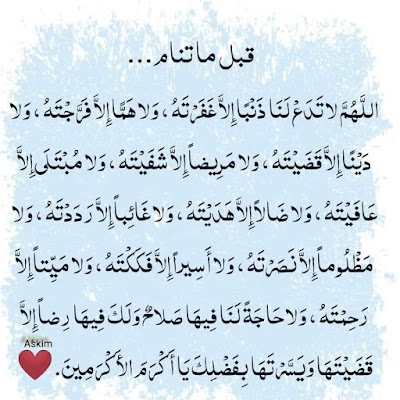 قبل ما تنام...
اللَّهُمَّ لا تَدَعْ لَنَا ذَنْبًا إِلاَّ غَفَرْتَهُ ، وَلا هَمًّا إِلاَّ فَرَّجْتَهُ ، وَلا
دَيْنًا إِلاَّ قَضَيْتَهُ ، وَلا مَرِيضاً إِلاَّ شَفَيْتَهُ ، وَلا مُبْتَلَى إِلاَّ
عَافَيْتَهُ ، وَلا ضَالاً إِلاَّ هَدَيْتَهُ ، وَلا غَائِباً إِلاَّ رَدَدْتَهُ ، وَلا
مَظْلُوماً إِلاَّ نَصَرْتَهُ ، وَلا أَسِيراً إِلاَّ فَكَكْتَهُ ، وَلا مَيِّتاً إِلاَّ
رَحِمْتَهُ ، وَلا حَاجَةً لَنَا فِيهَا صَلاحٌ وَلَكَ فِيهَا رِضاً إِلاَّ
قَضَيْتَهَا وَيَسَّرْتَهَا بِفَضْلِكَ يَا أَكْرَمَ الأَكْرَمِينَ.
Aşkim